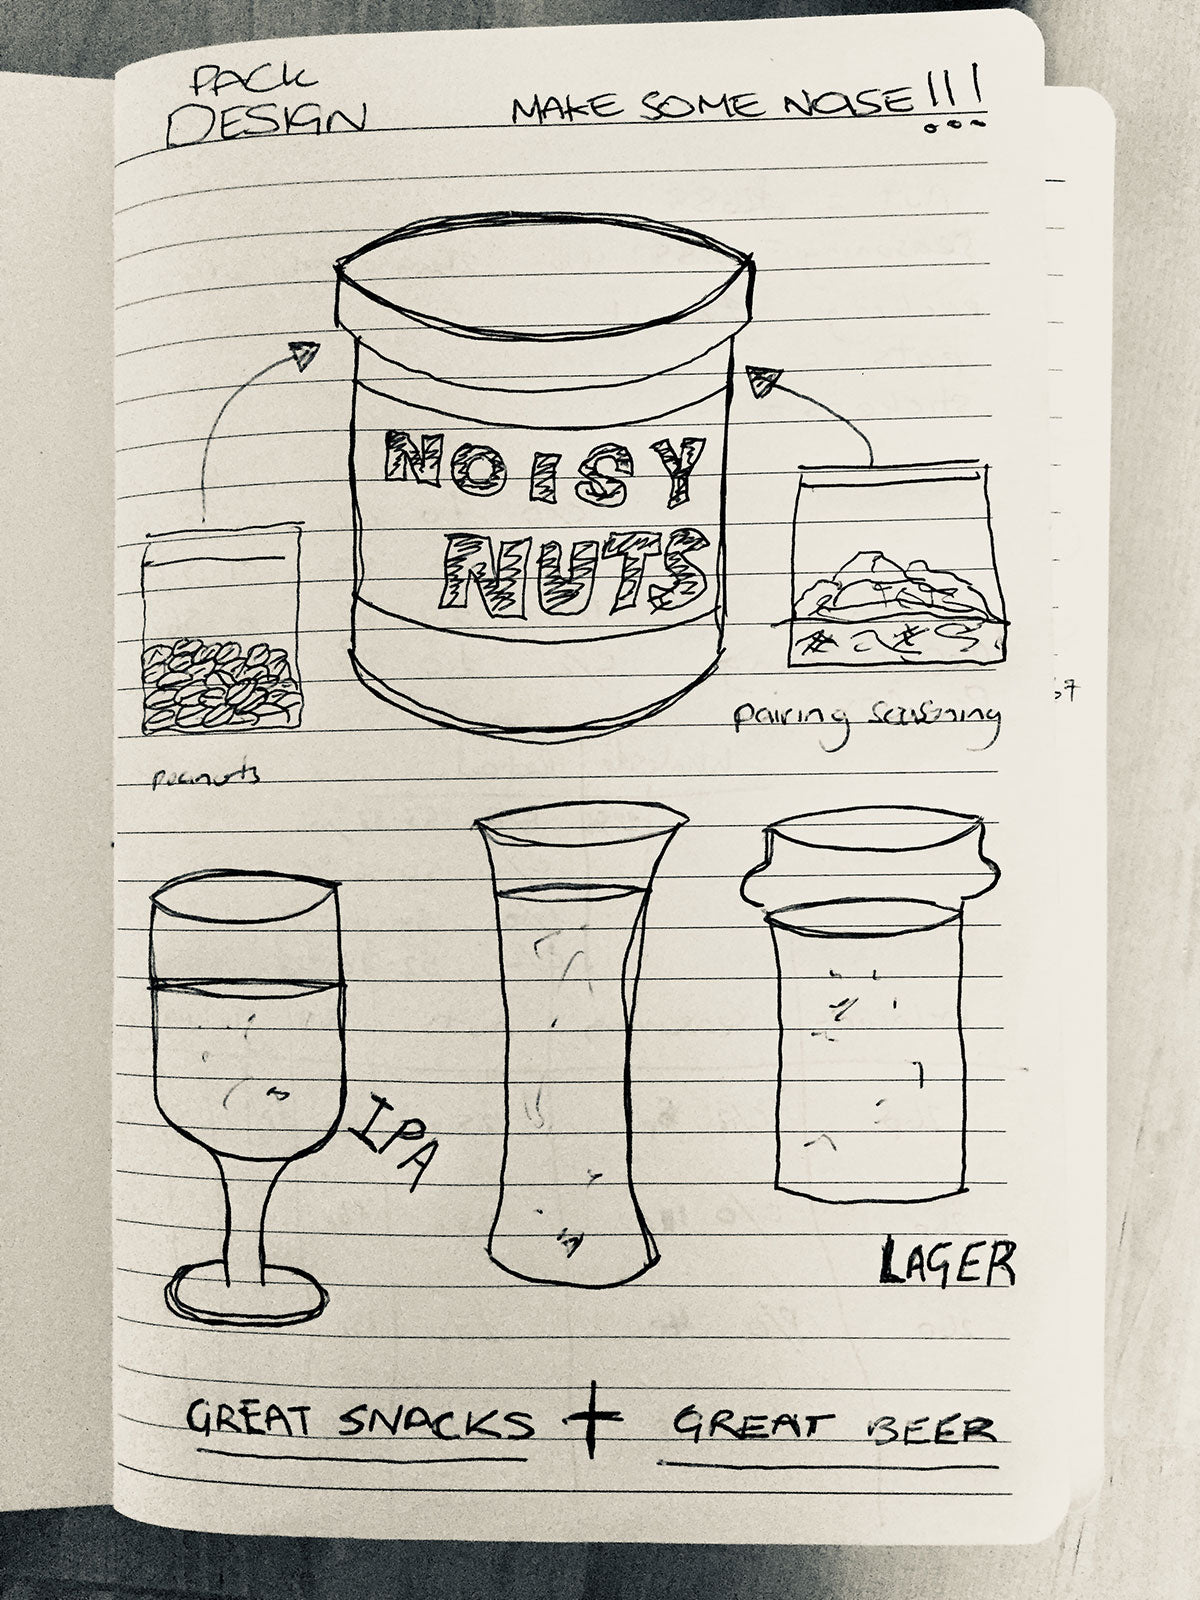 PACK
DESIGN
MAKE SOME NOISE!!!
NOISY
NUTS
pairing seasoning
peanuts
IPA
LAGER
GREAT SNACKS + GREAT BEER